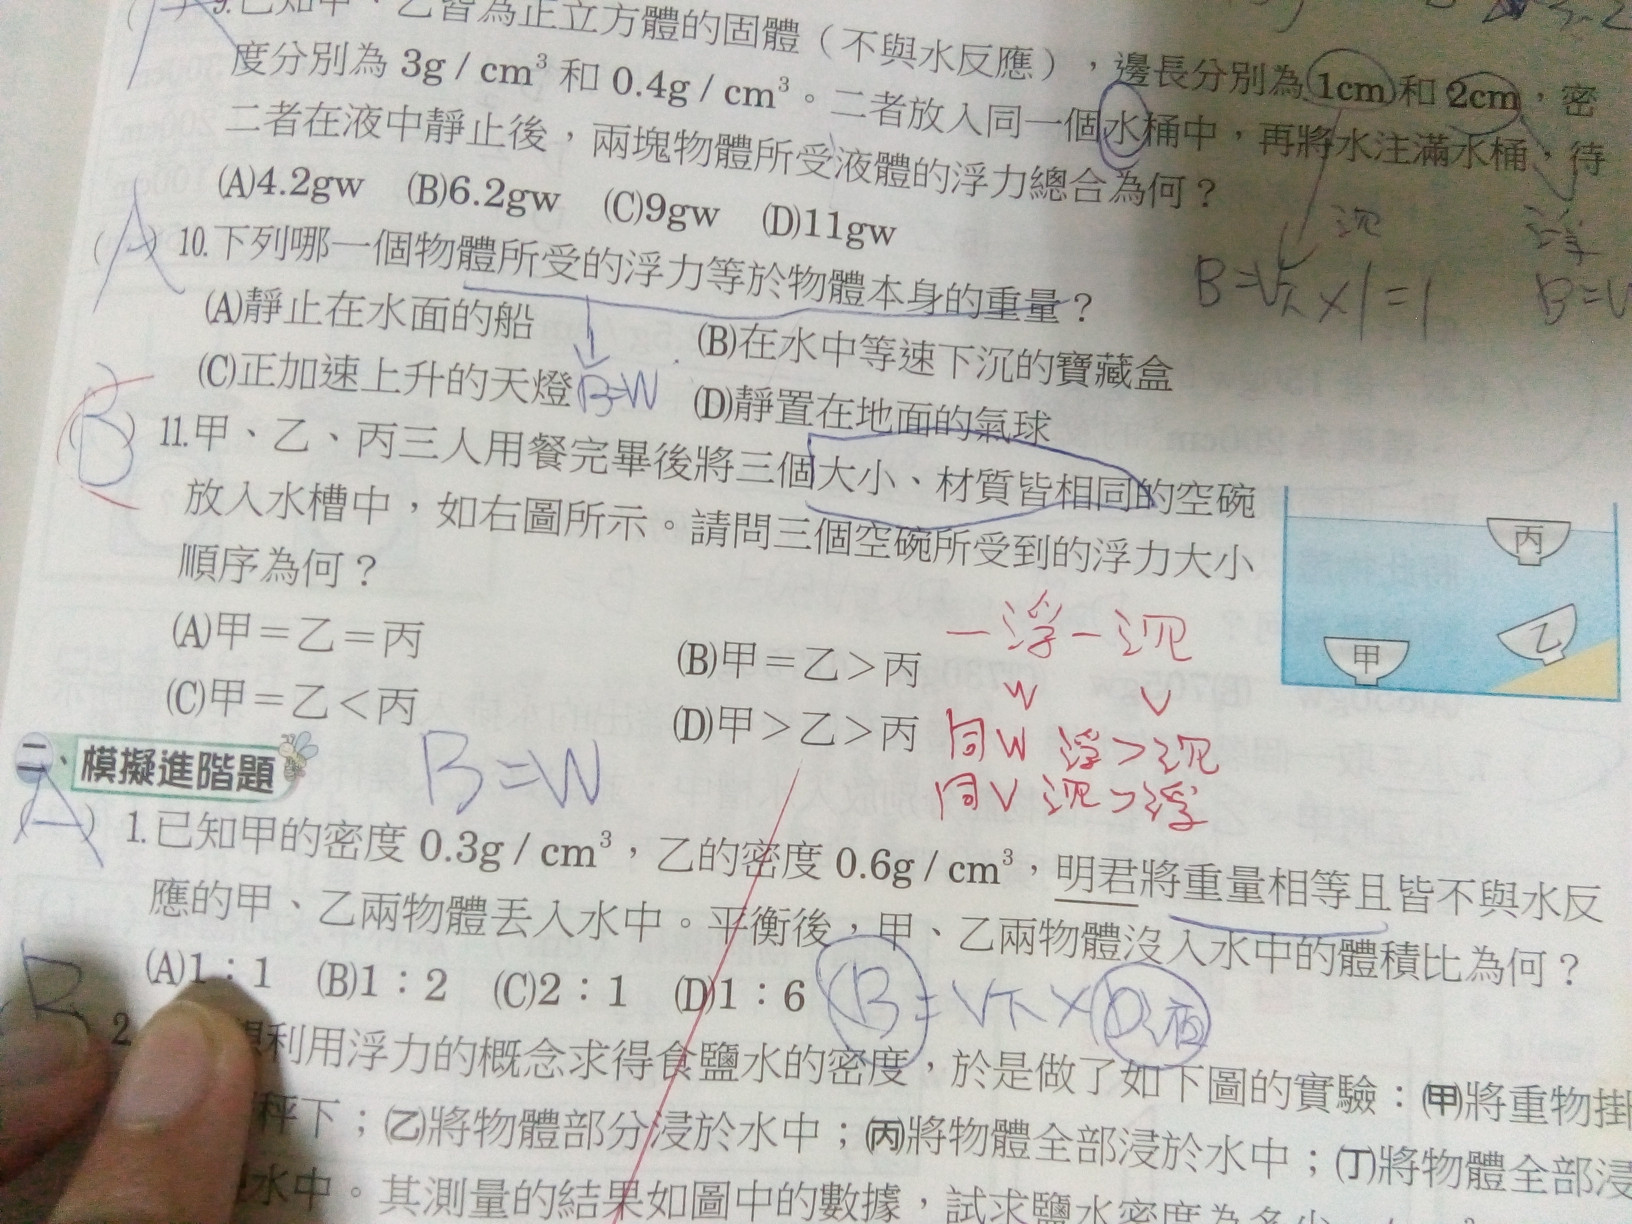 9.已知甲、乙皆為正立方體的固體（不與水反應），邊長分別為1cm和2cm，密
度分別為 3g / cm³ 和 0.4g / cm³。二者放入同一個水桶中，再將水注滿水桶，待
二者在液中靜止後，兩塊物體所受液體的浮力總合為何？
(A)4.2gw (B)6.2gw (C)9gw (D)11gw
沉 浮
B=V下×1=1 B=V
(A) 10.下列哪一個物體所受的浮力等於物體本身的重量？
(A)靜止在水面的船 (B)在水中等速下沉的寶藏盒
(C)正加速上升的天燈 B=W (D)靜置在地面的氣球
(B) 11.甲、乙、丙三人用餐完畢後將三個大小、材質皆相同的空碗
放入水槽中，如右圖所示。請問三個空碗所受到的浮力大小
順序為何？
丙
乙
甲
(A)甲＝乙＝丙 (B)甲＝乙＞丙
(C)甲＝乙＜丙 (D)甲＞乙＞丙
一浮一沉
W V
同W 浮>沉
同V 沉>浮
二、模擬進階題
B=W
(A) 1.已知甲的密度 0.3g / cm³，乙的密度 0.6g / cm³，明君將重量相等且皆不與水反
應的甲、乙兩物體丟入水中。平衡後，甲、乙兩物體沒入水中的體積比為何？
(A)1：1 (B)1：2 (C)2：1 (D)1：6
B=V下×D液
B 2 想利用浮力的概念求得食鹽水的密度，於是做了如下圖的實驗：(甲)將重物掛
秤下；(乙)將物體部分浸於水中；(丙)將物體全部浸於水中；(丁)將物體全部浸
水中。其測量的結果如圖中的數據，試求鹽水密度為多少